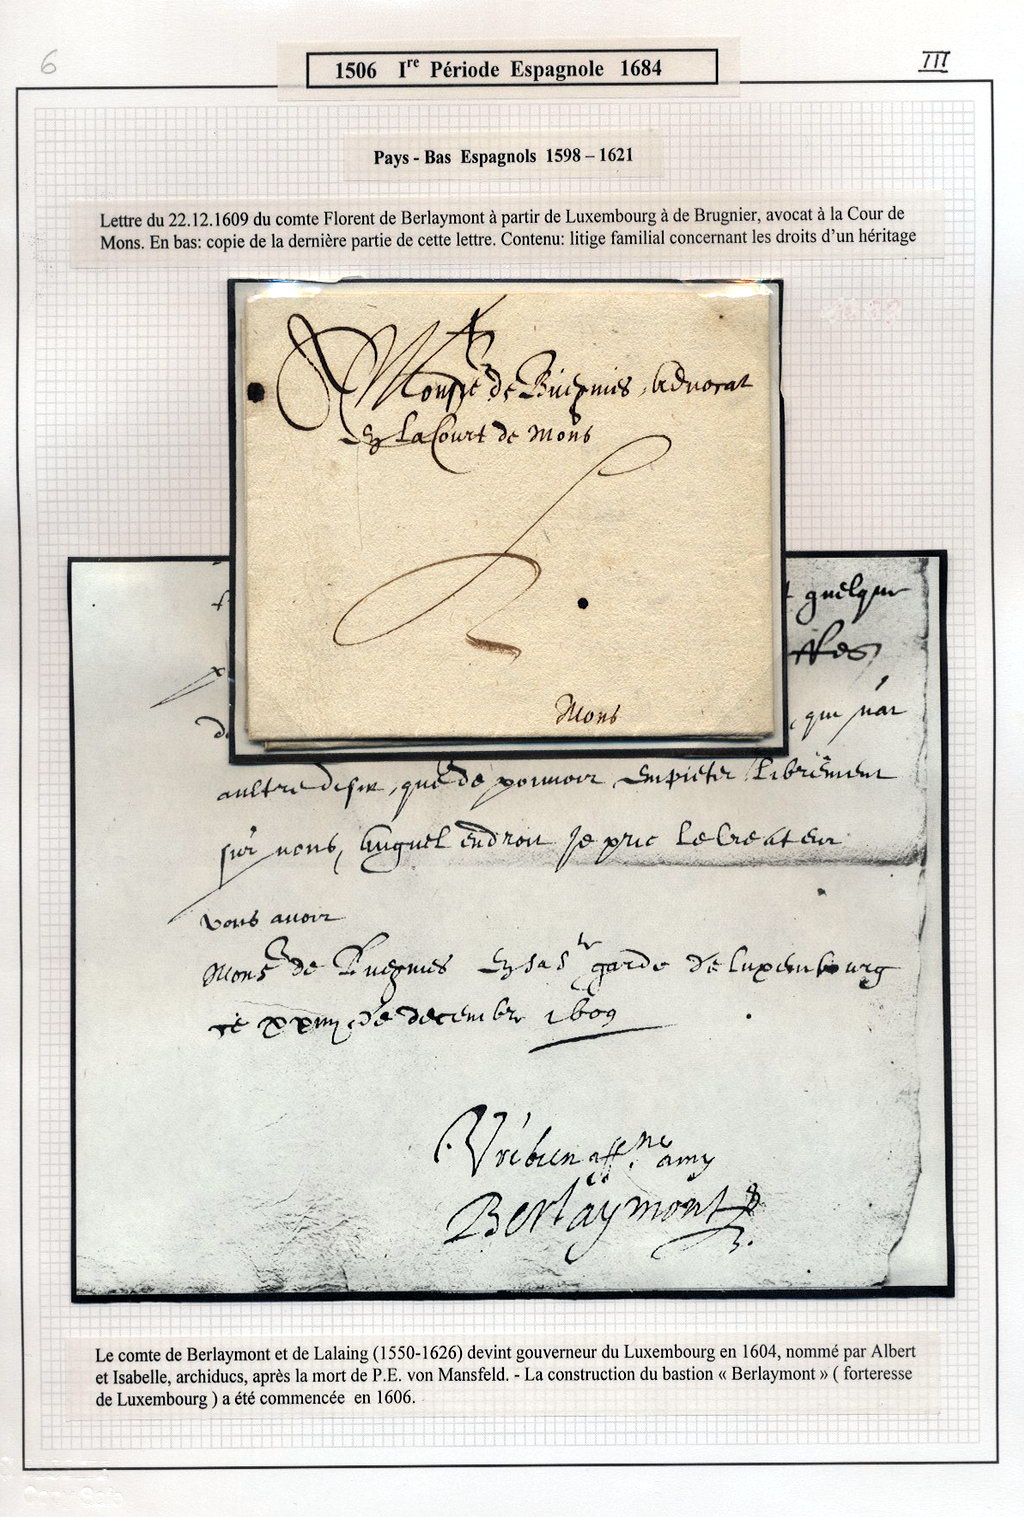 6
III
1506 Ire Période Espagnole 1684
Pays - Bas Espagnols 1598 – 1621
Lettre du 22.12.1609 du comte Florent de Berlaymont à partir de Luxembourg à de Brugnier, avocat à la Cour de
Mons. En bas: copie de la dernière partie de cette lettre. Contenu: litige familial concernant les droits d’un héritage
de Buegnies, Advocat
En la Court de Mons
Mons
quelque
, qui n'ar
aultre desir, que de pouuoir empieter librement
sur nous, Auquel endroit je prie le Createur
vous auoir
Monsr de Buegnies garde de luxembourg
ce de decembre 1609
Vre bien affne amy
Berlaymont
Le comte de Berlaymont et de Lalaing (1550-1626) devint gouverneur du Luxembourg en 1604, nommé par Albert
et Isabelle, archiducs, après la mort de P.E. von Mansfeld. - La construction du bastion « Berlaymont » ( forteresse
de Luxembourg ) a été commencée en 1606.